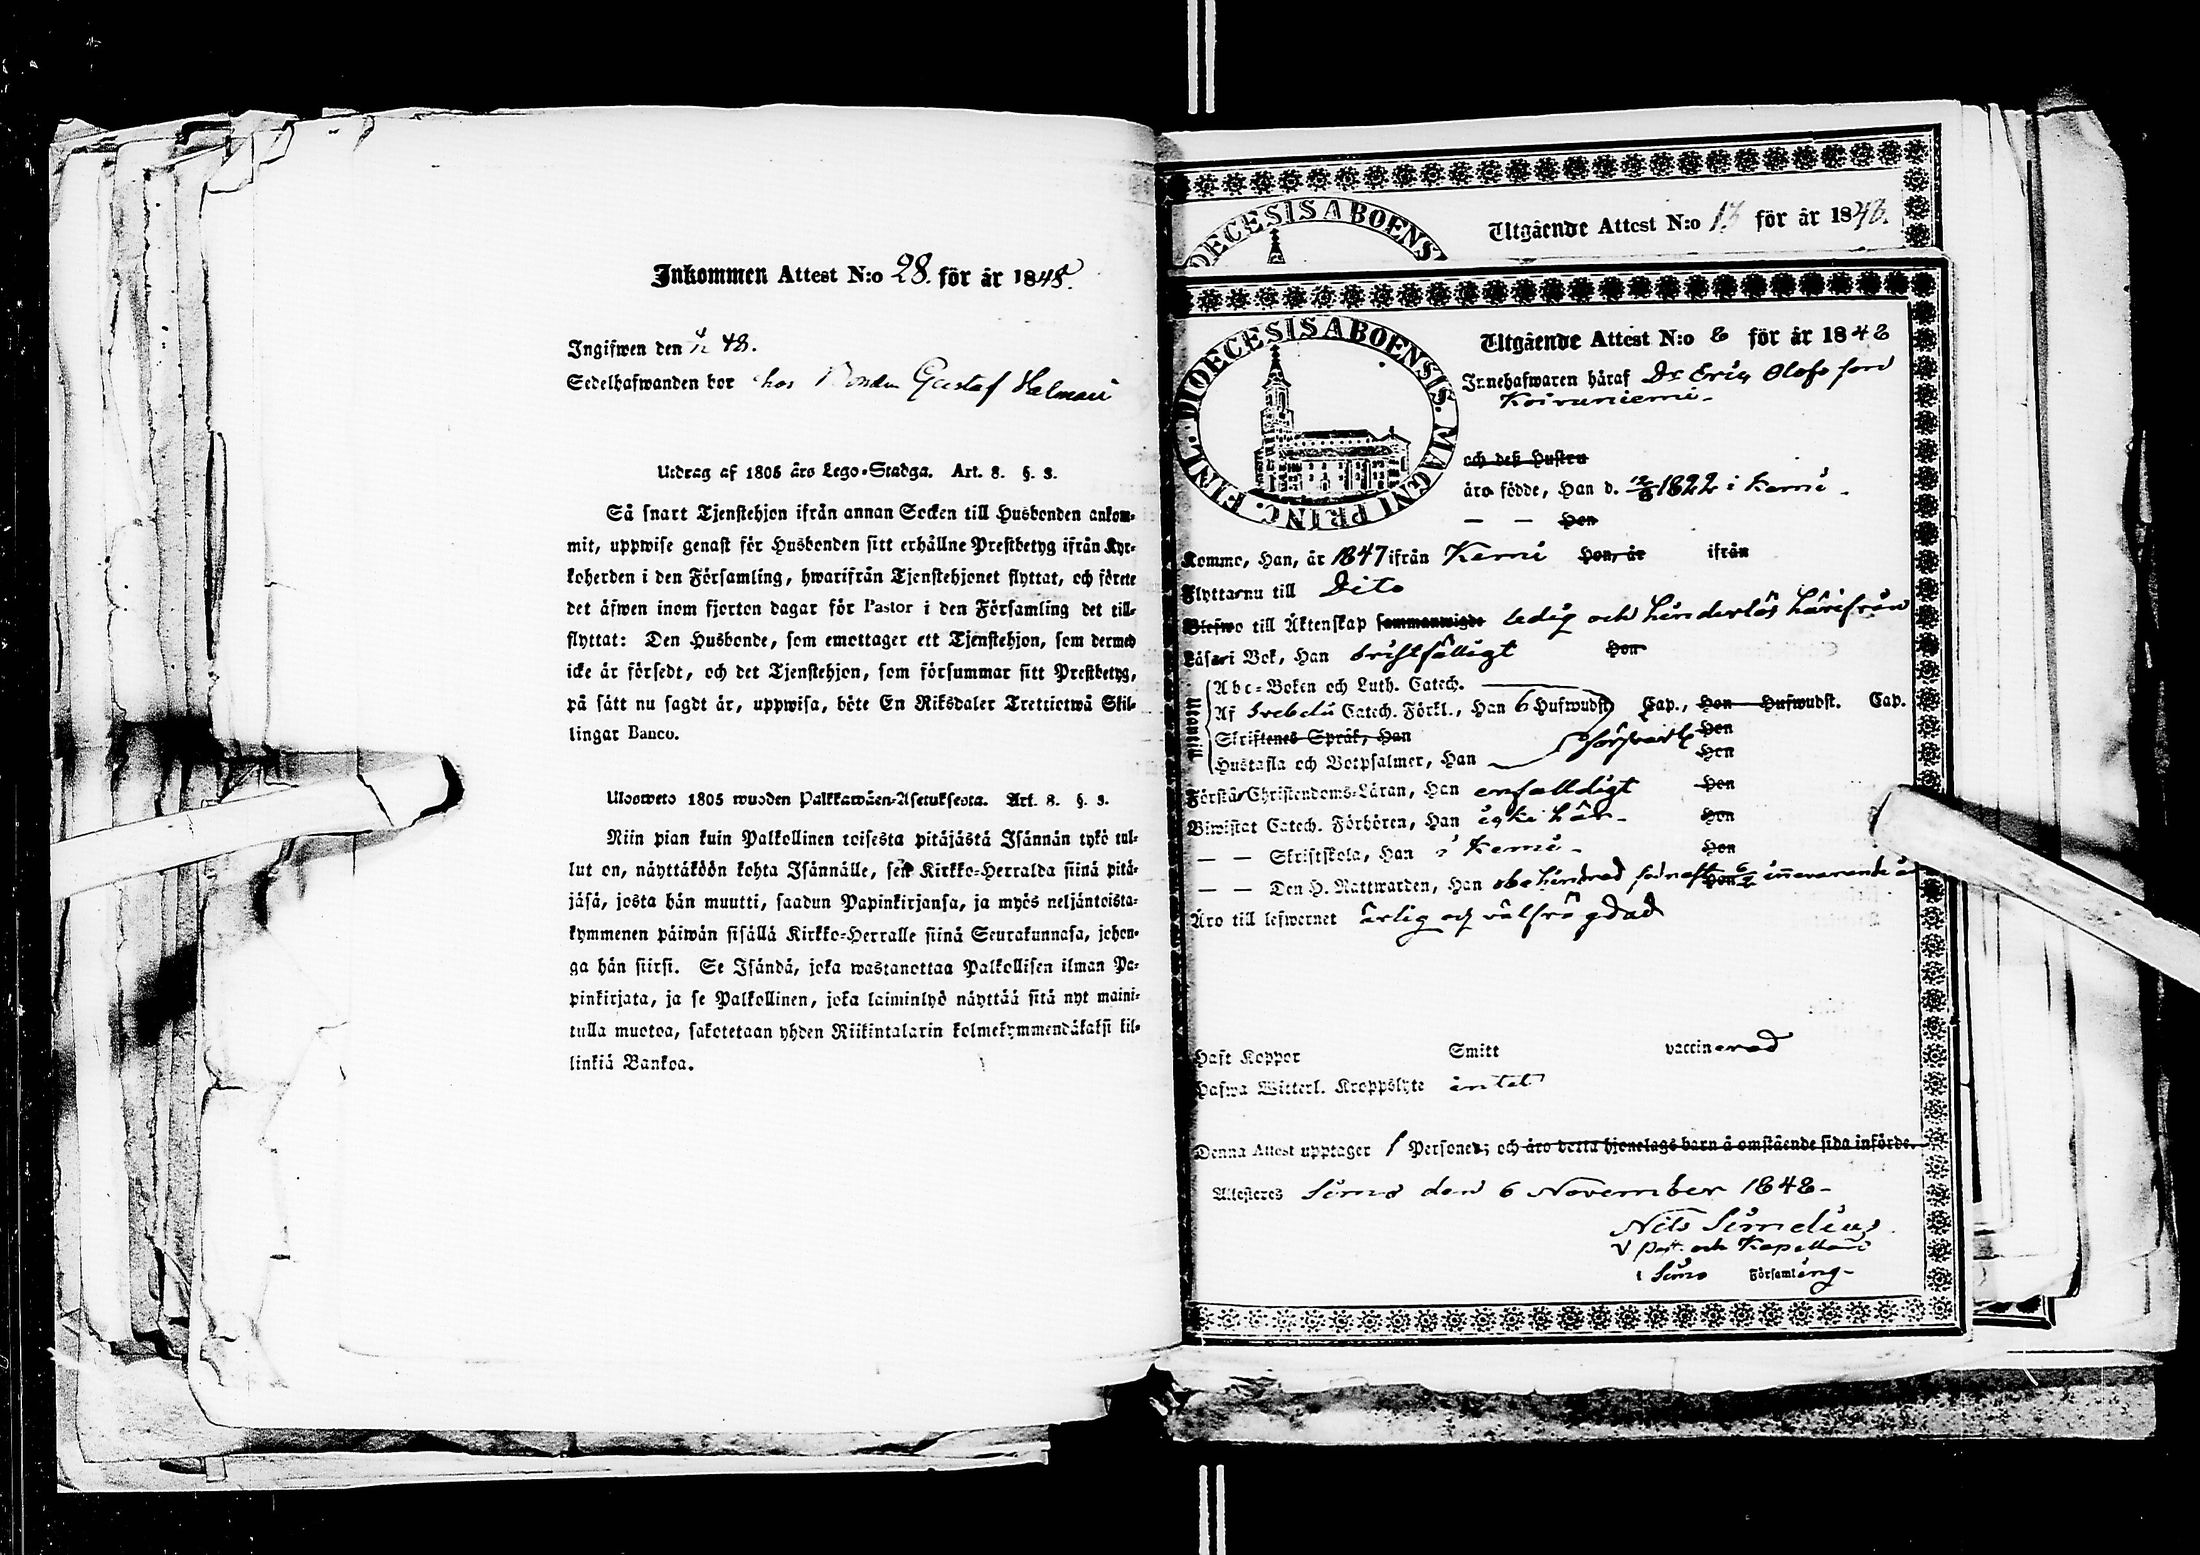 Inkommen Attest N:o 28. för år 1848.
Ingifwen den 4/12 48.
Sedelhafwanden bor hos Bonden Gustaf Halmari
Utdrag af 1805 års Lego-Stadga. Art. 8. §. 3.
Så snart Tjenstehjon ifrån annan Socken till Husbonden ankom-
mit, uppwise genast för Husbonden sitt erhållne Prestbetyg ifrån Kyr-
koherden i den Församling, hwarifrån Tjenstehjonet flyttat, och förete
det äfwen inom fjorton dagar för Pastor i den Församling det till-
flyttat: Den Husbonde, som emottager ett Tjenstehjon, som dermed
icke är försedt, och det Tjenstehjon, som försummar sitt Prestbetyg,
på sätt nu sagdt är, uppwisa, böte En Riksdaler Trettiotwå Skil-
lingar Banco.
Ulosweto 1805 wuoden Palkkawäen-Asetuksesta. Art. 8. §. 3.
Niin pian kuin Palkollinen toisesta pitäjästä Isännän tykö tul-
lut on, näyttäköön kohta Isännälle, sen Kirkko-Herralda siinä pitä-
jäsä, josta hän muutti, saadun Papinkirjansa, ja myös neljäntoista-
kymmenen päiwän sisällä Kirkko-Herralle siinä Seurakunnasa, johon-
ga hän siirsi. Se Isändä, joka wastanottaa Palkollisen ilman Pa-
pinkirjata, ja se Palkollinen, joka laiminlyö näyttää sitä nyt maini-
tulla muotoa, sakotetaan yhden Riikintalarin kolmekymmendäkaksi kil-
linkiä Bankoa.
DIOECESIS ABOENS
Utgående Attest N:o 13 för år 1848.
DIOECESIS ABOENSIS. MAGNI PRINC. FINL.
Utgående Attest N:o 8 för år 1848
Innehafwaren häraf Dr Eric Olofs son
Koivuniemi
och deß Hustru
äro födde, Han d. 12/8 1822 i Kemi
— — Hon
Kommo, Han, år 1847 ifrån Kemi Hon, år ifrån
Flytta nu till Dito
Blefwo till Äktenskap sammanwigde ledig och hinderlös härifrån
Läsa i Bok, Han bristfälligt Hon
Utantill
Abc-Boken och Luth. Catech.
Af Svebelii Catech. Förkl., Han 6 Hufwudst Cap., Hon Hufwudst. Cap.
Skriftenes Språk, Han försvarl Hon
Hustafla och Botpsalmer, Han Hon
Förstå Christendoms-Läran, Han enfalldigt Hon
Biwistat Catech. Förhören, Han icke här Hon
— — Skriftskola, Han i Kemi Hon
— — Den H. Nattwarden, Han obehindrad sednast Hon innevarande år
Äro till lefwernet ärlig och välfrägdad
Haft Koppor Smitt vaccinerad
Hafwa Witterl. Kroppslyte intet
Denna Attest upptager 1 Personer; och äro detta hjonelags barn å omstående sida införde.
Attesteres Simo den 6 November 1848
Nils Simelius
V past. och Kapellan
i Simo Församling